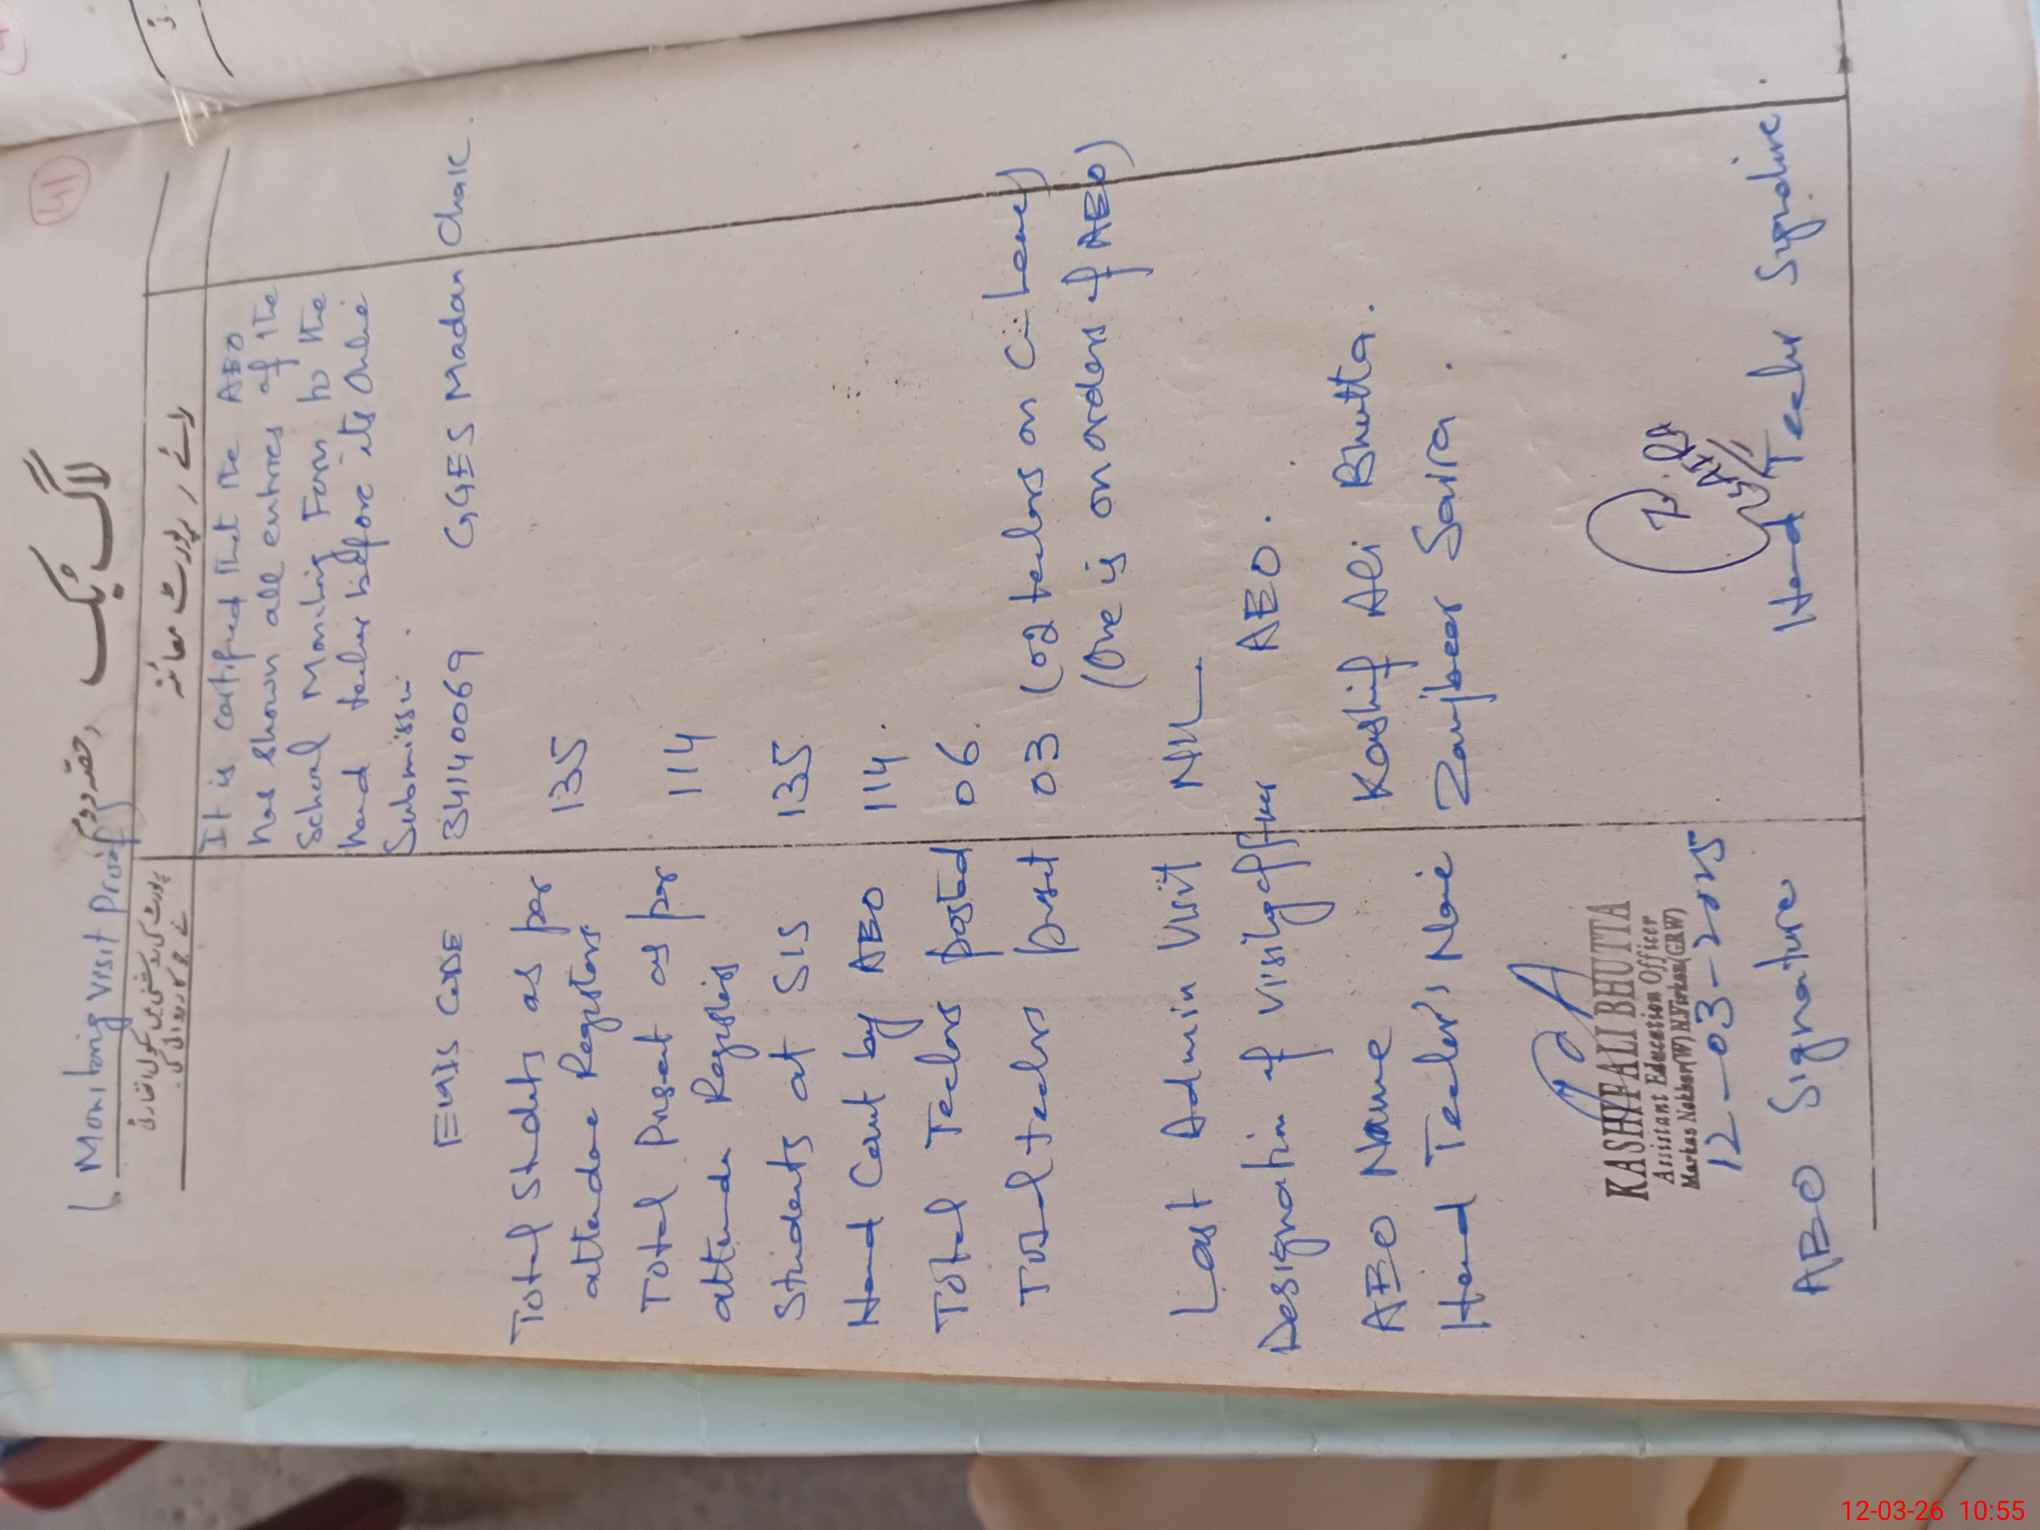 لاگ بُک (حصہ دوم)
(Monitoring Visit Proof)
رائے / رپورٹ معائنہ
It is certified that the AEO
has shown all entries of the
School Monitoring Form to the
head teacher before its Online
Submission.
EMIS CODE 34140069 GGES Madan Chak.
Total Students as per
attendance Registers 135
Total Present as per
attendance Registers 114
Students at SIS 135
Head Count by AEO 114.
Total Teachers posted 06.
Total teachers present 03 (02 teachers on C. Leave)
(One is on orders of AEO)
Last Admin Visit NIL
Designation of visiting officer AEO.
AEO Name Kashif Ali Bhutta.
Head Teacher's Name Zanjbeer Saira.
KASHIF ALI BHUTTA
Assistant Education Officer
12-03-2025
AEO Signature Head Teacher Signature
12-03-26 10:55